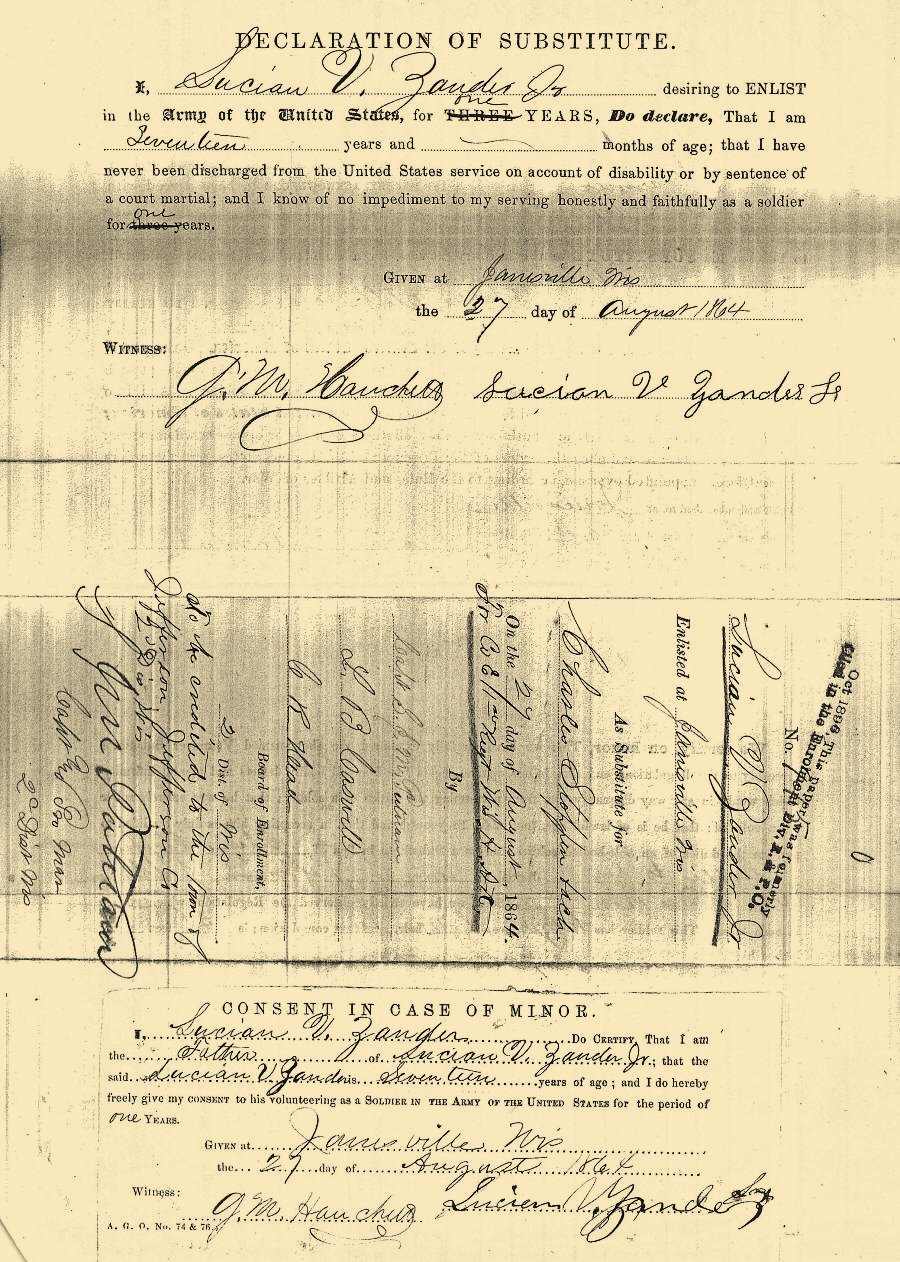 DECLARATION OF SUBSTITUTE.
I, Lucian V. Zander Jr desiring to ENLIST
one
in the Army of the United States, for THREE YEARS, Do declare, That I am
Seventeen years and months of age; that I have
never been discharged from the United States service on account of disability or by sentence of
a court martial; and I know of no impediment to my serving honestly and faithfully as a soldier
one
for three years.
GIVEN at Janesville Wis
the 27 day of August 1864
WITNESS:
G. M. Lucian V Zander Jr
Oct 1886, This paper was formerly
filed in the Enrolment Div. R. & P. O.
No. 1
Lucian V Zander Jr
Enlisted at Janesville Wis
As Substitute for
Charles
On the 27 day of August, 1864.
For Co E 1st Regt Wis H Art
By
Capt S. J. M. Putnam
C R Head
Board of Enrollment,
2 Dist. of Wis
To be credited to the town of
Jefferson Jefferson Co
2d Dist Wis
Capt & Pro Mar
2d Dist Wis
CONSENT IN CASE OF MINOR.
I, Lucian V. Zander Do CERTIFY, That I am
the Father of Lucian V. Zander Jr.; that the
said Lucian V Zander is Seventeen years of age; and I do hereby
freely give my CONSENT to his volunteering as a SOLDIER IN THE ARMY OF THE UNITED STATES for the period of
one YEARS.
GIVEN at Janesville Wis
the 27 day of August 1864
Witness:
G. M. Lucien V. Zander
A. G. O. No. 74 & 76.